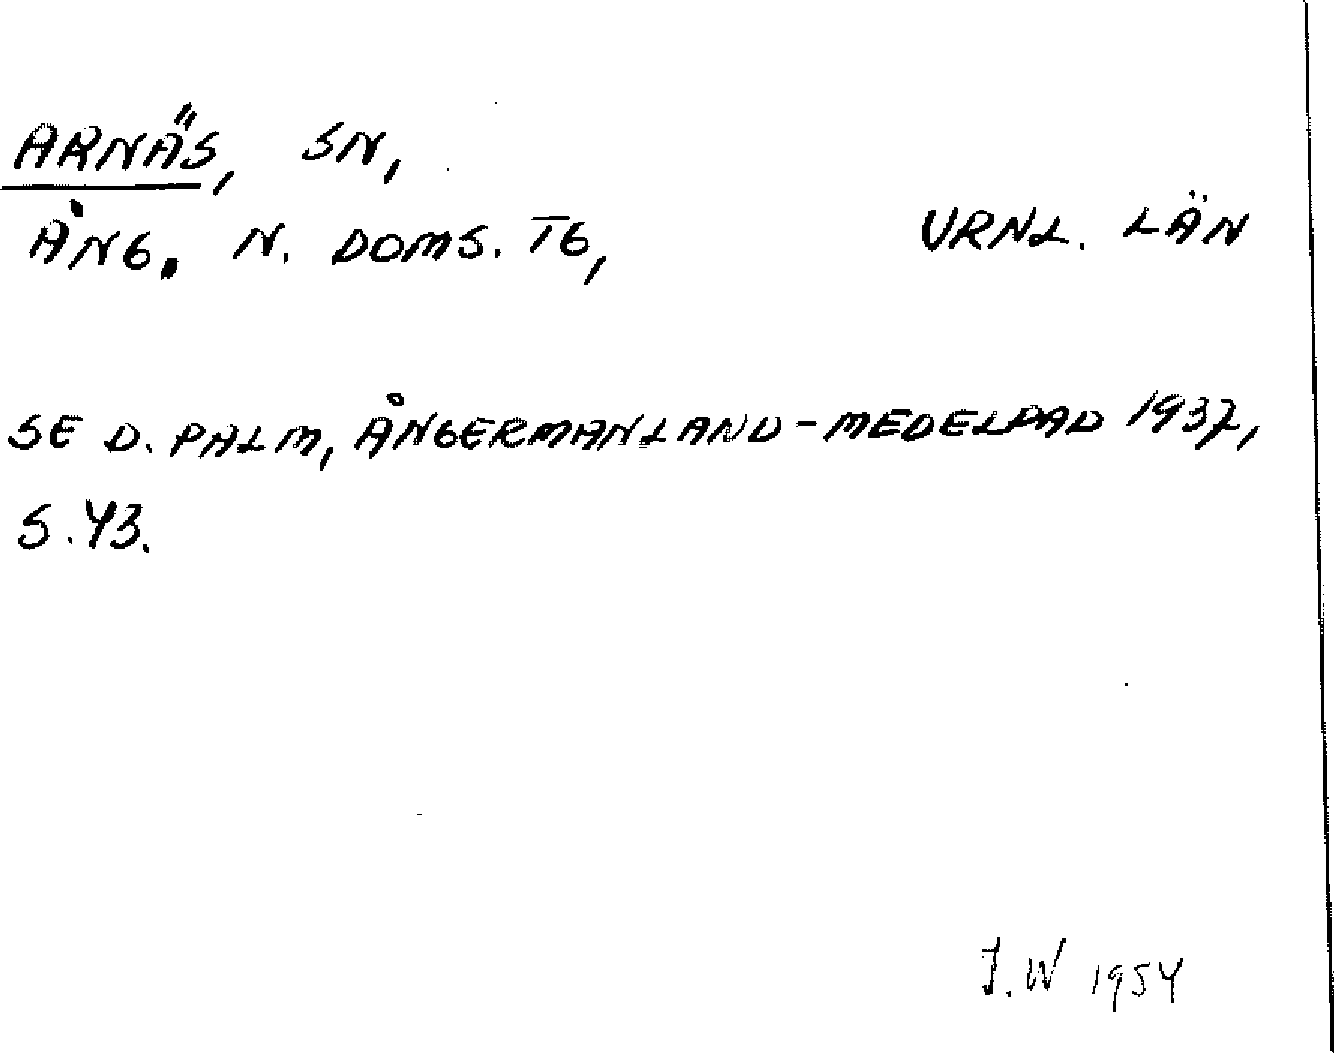 ARNÄS, SN,
ÅNG. N. DOMS. TG, VRNL. LÄN
SE D. PALM, ÅNGERMANLAND-MEDELPAD 1937,
S. 43.
J.W 1954